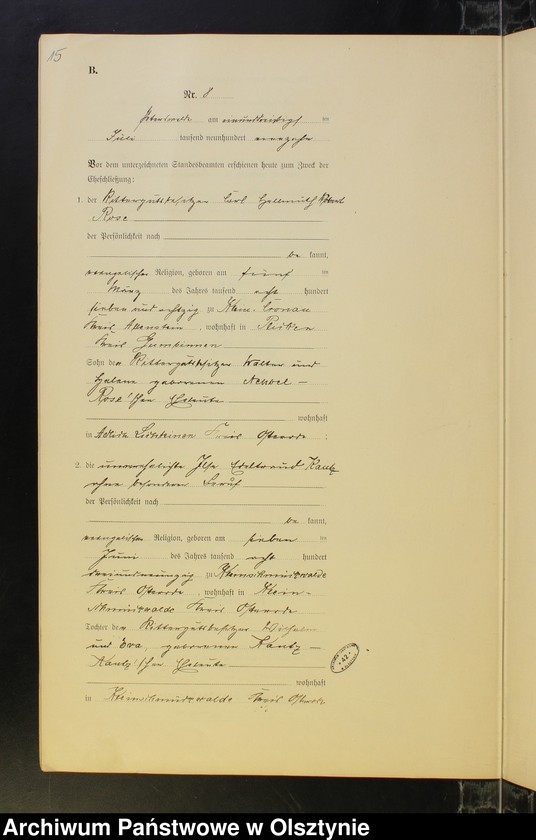 15
B.
Nr. 8
Peterswalde am neunundzwanzigsten
Juli tausend neunhundert vierzehn
Vor dem unterzeichneten Standesbeamten erschienen heute zum Zweck der
Eheschließung:
1. der Rittergutsbesitzer Carl Hellmuth Robert
Rose
der Persönlichkeit nach
be kannt,
evangelischer Religion, geboren am fünften
März des Jahres tausend acht hundert
sieben und achtzig zu Klein-Cronau
Kreis Allenstein, wohnhaft in
Kreis Gumbinnen
Sohn des Rittergutsbesitzer Walter und
Helene geborenen
Rose'schen Eheleute
wohnhaft
in Kreis Osterode;
2. die unverehelichte Ilse Edeltraud Kautz
ohne besonderen Beruf
der Persönlichkeit nach
be kannt,
evangelischer Religion, geboren am sieben
Juni des Jahres tausend acht hundert
dreiundneunzig zu
Kreis Osterode, wohnhaft in Klein-
Kreis Osterode
Tochter des Rittergutsbesitzer Wilhelm
und Eva, geborenen Kautz –
Kautz'schen Eheleute
wohnhaft
in Kreis Osterode
42
Archiwum Państwowe w Olsztynie